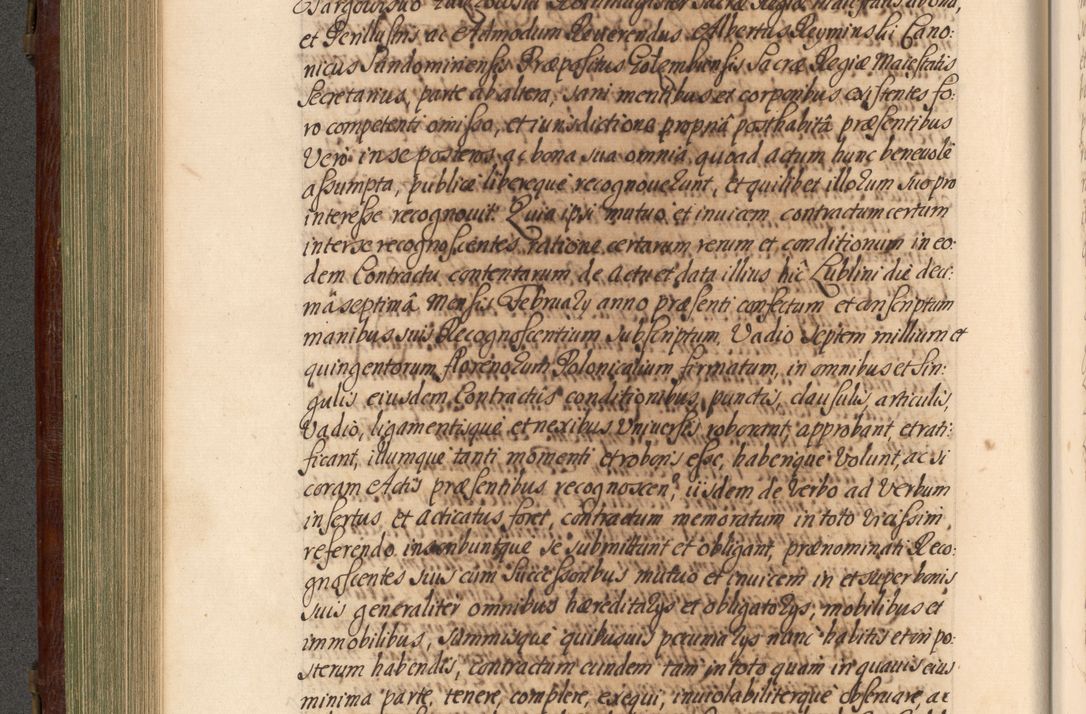 et Perillustris ac Admodum Reverendus Albertus Reyminski Cano:
nicus Sandomiriensis Præpositus Golembiensis Sacræ Regiæ Maiestatis
Secretarius, parte ab altera, sani mentibus et corporibus existentes fo:
ro competenti omisso, et iurisdictione propriâ posthabitâ præsentibus
Vero in se posteros, ac bona sua omnia, quoad actum hunc benevolè
assumpta, publicè libereque recognoverunt, et quilibet illorum suo pro
interesse recognovit. Quia ipsi mutuo et invicem contractum certum
inter se recognoscentes ratione certarum rerum et conditionum in eo:
dem Contractu contentarum de actu et data illius hîc Lublini die deci:
mâ septimâ Mensis Februarÿ anno præsenti confectum et conscriptum
manibus suis Recognoscentium subscriptum, Vadio septem millium et
quingentorum florenorum Polonicalium firmatum, in omnibus et sin:
gulis eiusdem Contractûs conditionibus, punctis, clausulis, articulis,
Vadio, ligamentisque et nexibus Universis roborant, approbant, et rati:
ficant, illumque tanti momenti et roboris esse, habereque Volunt, ac si
coram Actis præsentibus recognoscen?, iisdem de Verbo ad Verbum
insertus et acticatus foret, contractum memoratum in toto
referendo. inscribuntque se submittunt et obligant, prænominati Reco:
gnoscentes suis cum successoribus mutuo et invicem in et super bonis
suis generaliter omnibus hæreditarÿs et obligatorÿs, mobilibus et
immobilibus, summisque quibusvis pecuniarÿs nunc habitis et in po:
sterum habendis, contractum eundem tam in toto quam in quavis eius
minima parte, tenere, complere, exequi, inviolabiliterque observare, ac